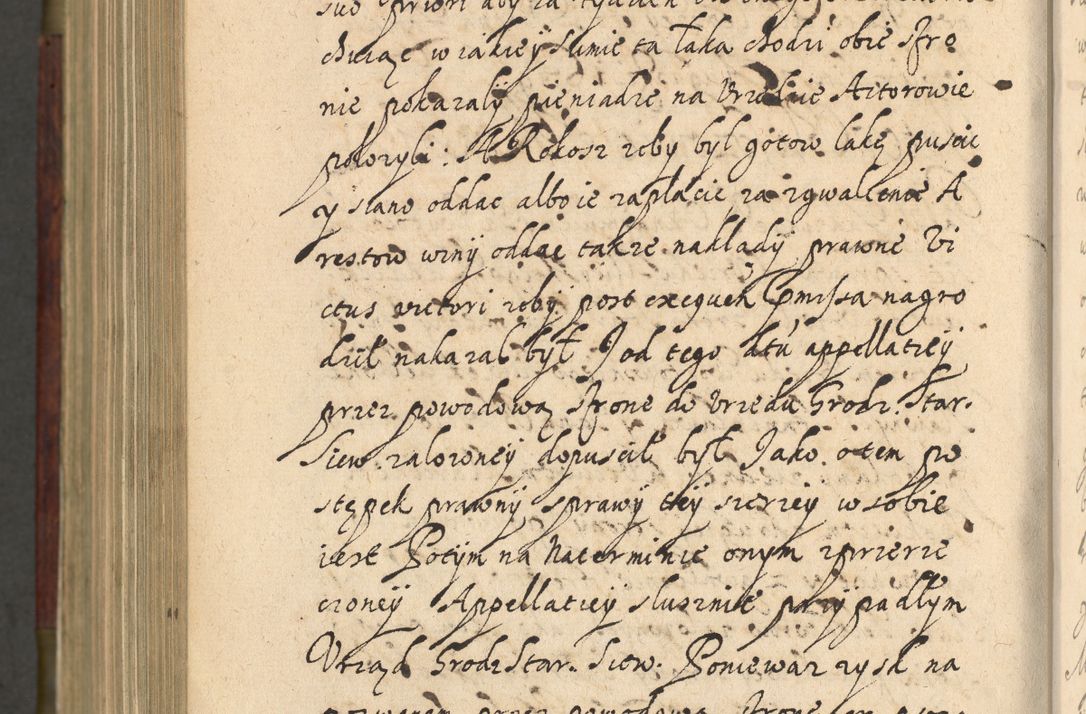 chcząc w iakiey sumie ta łąka chodzi obie stro
nie pokazały pieniądze na Vrzędzie Actorowie
położyli: A Rokosz żeby był gotow łąkę puscic
y siano oddac albo ie zapłacic za zgwałcenie A
restow winy oddac także nakłady prawne Vi
ctus victori żeby post exequen Commissa nagro
dził nakazał był Y od tego dtu appellatiey
przez powodową strone do Vrzędu Grodz. Star.
Siew. założoney dopuscił był Jako o tem po
stępek prawny sprawy tey szerzey w sobie
iest Potym na na terminie onym z przerze
czoney Appellatiey słusznie przypadłym
Vrząd Grodz Star. Siew. Poniewaz zysk na